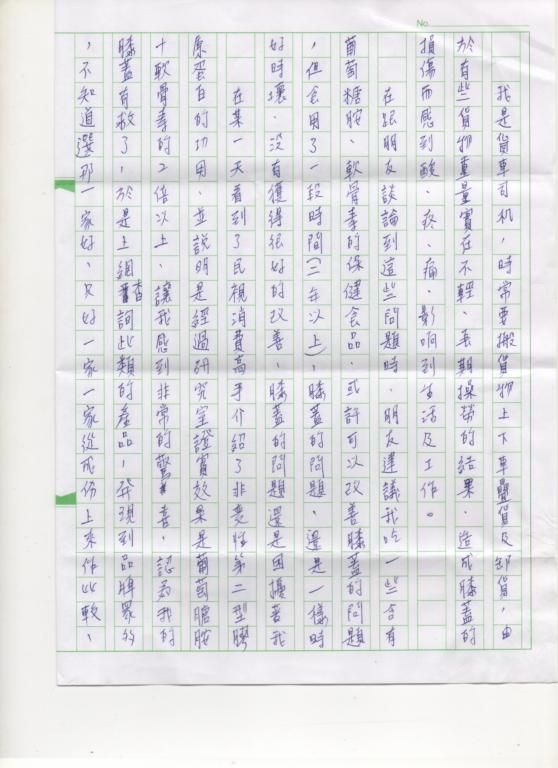 No.
我是貨車司机，時常要搬貨物上下車疊貨及卸貨，由
於有些貨物重量實在不輕、長期操勞的結果、造成膝蓋的
損傷而感到酸、疼、痛、影响到生活及工作。
在跟明友談論到這些問題時、明友建議我吃一些含有
葡萄糖胺、軟骨素的保健食品、或許可以改善膝蓋的問題
，但食用了一段時間(二年以上)，膝蓋的問題、還是一樣時
好時壞、没有獲得很好的改善，膝蓋的問題還是困擾著我
在某一天看到了民視消費高手介紹了非變性第二型膠
原蛋白的功用、並說明是經過研究室證實效果是葡萄醣胺
十軟骨素的2倍以上、讓我感到非常的驚喜、認為我的
膝蓋有救了，於是上網查詢此類的產品，發現到品牌眾多
，不知道選那一家好、只好一家一家從成份上來作比較、